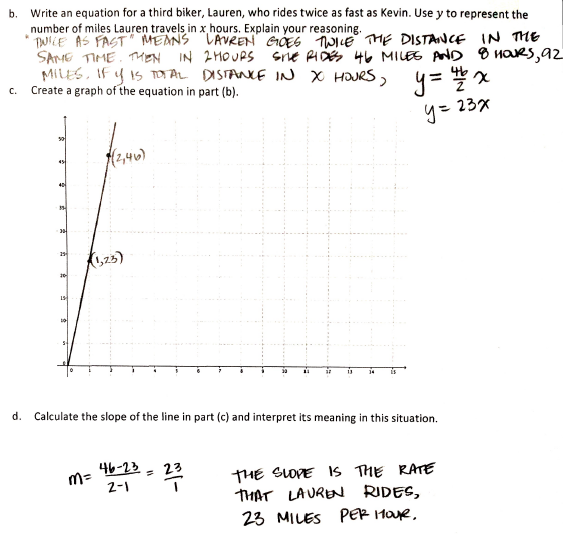 b. Write an equation for a third biker, Lauren, who rides twice as fast as Kevin. Use y to represent the
number of miles Lauren travels in x hours. Explain your reasoning.
"TWICE AS FAST" MEANS LAUREN GOES TWICE THE DISTANCE IN THE
SAME TIME. THEN IN 2 HOURS SHE RIDES 46 MILES AND 8 HOURS, 92
MILES. IF y IS TOTAL DISTANCE IN X HOURS, y = 46/2 x
y = 23x
c. Create a graph of the equation in part (b).
50
45
40
35
30
25
20
15
10
5
0
(2,46)
(1,23)
0 1 2 3 4 5 6 7 8 9 10 11 12 13 14 15
d. Calculate the slope of the line in part (c) and interpret its meaning in this situation.
m = 46-23 / 2-1 = 23/1
THE SLOPE IS THE RATE
THAT LAUREN RIDES,
23 MILES PER HOUR.